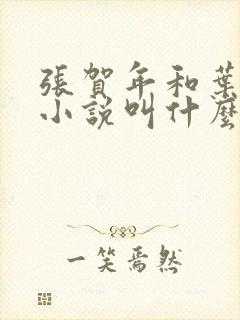 張賀年和葉
小說叫什麼
一笑焉然